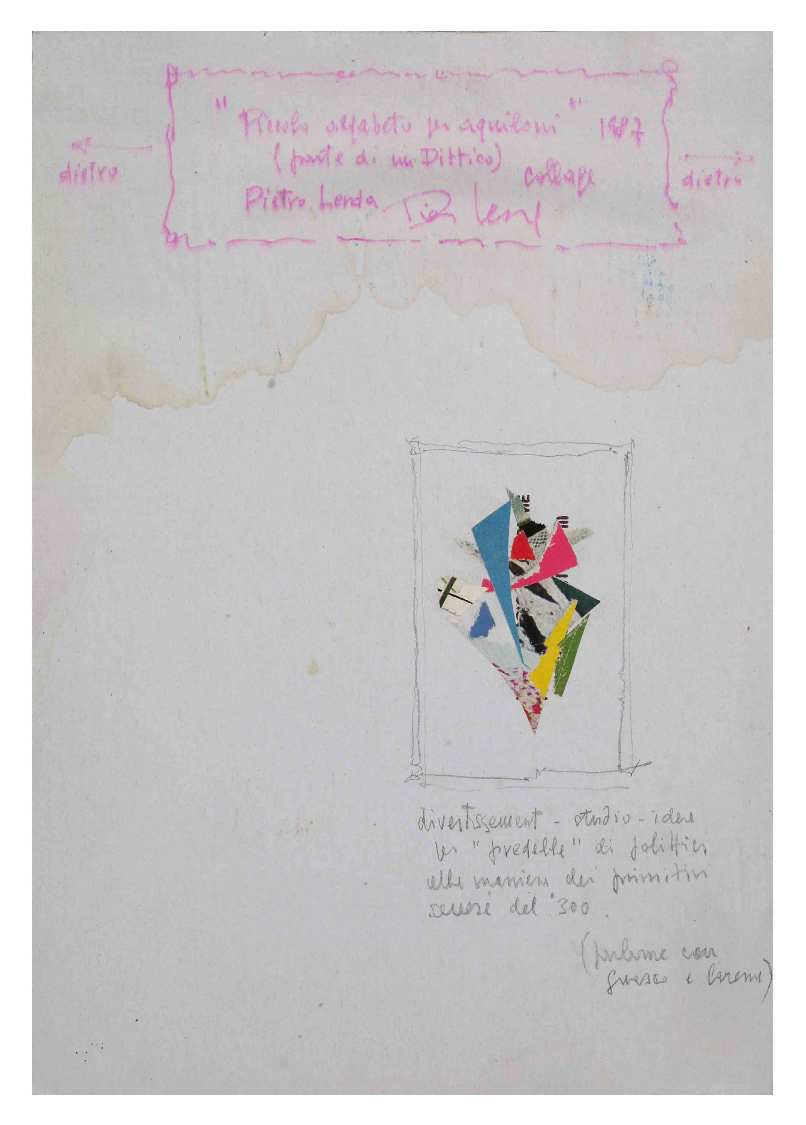 "Piccolo alfabeto per aquiloni" 1987
(parte di un Dittico)
collage
dietro
dietro
Pietro Lenda
divertissement - studio - idea
per "predelle" di polittici
alla maniera dei primitivi
senesi del '300.
(parlarne con
e